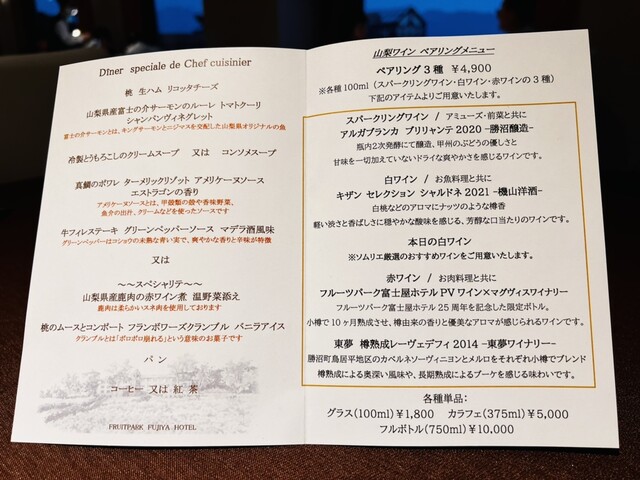 Dîner speciale de Chef cuisinier
桃 生ハム リコッタチーズ
山梨県産富士の介サーモンのルーレ トマトクーリ
シャンパンヴィネグレット
富士の介サーモンとは、キングサーモンとニジマスを交配した山梨県オリジナルの魚
冷製とうもろこしのクリームスープ 又は コンソメスープ
真鯛のポワレ ターメリックリゾット アメリケーヌソース
エストラゴンの香り
アメリケーヌソースとは、甲殻類の殻や香味野菜、
魚介の出汁、クリームなどを使ったソースです
牛フィレステーキ グリーンペッパーソース マデラ酒風味
グリーンペッパーはコショウの未熟な青い実で、爽やかな香りと辛味が特徴
又は
～～スペシャリテ～～
山梨県産鹿肉の赤ワイン煮 温野菜添え
鹿肉は柔らかいスネ肉を使用しております
桃のムースとコンポート フランボワーズクランブル バニラアイス
クランブルとは「ボロボロ崩れる」という意味のお菓子です
パン
コーヒー 又は 紅茶
FRUITPARK FUJIYA HOTEL
山梨ワイン ペアリングメニュー
ペアリング3種 ￥4,900
※各種100ml（スパークリングワイン・白ワイン・赤ワインの3種）
下記のアイテムよりご用意いたします。
スパークリングワイン / アミューズ・前菜と共に
アルガブランカ ブリリャンテ 2020 –勝沼醸造–
瓶内2次発酵にて醸造、甲州のぶどうの優しさと
甘味を一切加えていないドライな爽やかさを感じるワインです。
白ワイン / お魚料理と共に
キザン セレクション シャルドネ 2021 –機山洋酒–
白桃などのアロマにナッツのような樽香
軽い渋さと香ばしさに穏やかな酸味を感じる、芳醇な口当たりのワインです。
本日の白ワイン
※ソムリエ厳選のおすすめワインをご用意いたします。
赤ワイン / お肉料理と共に
フルーツパーク富士屋ホテルPVワイン×マグヴィスワイナリー
フルーツパーク富士屋ホテル25周年を記念した限定ボトル。
小樽で10ヶ月熟成させ、樽由来の香りと優美なアロマが感じられるワインです。
東夢 樽熟成レーヴェデフィ 2014 –東夢ワイナリー–
勝沼町鳥居平地区のカベルネソーヴィニヨンとメルロをそれぞれ小樽でブレンド
樽熟成による奥深い風味や、長期熟成によるブーケを感じる味わいです。
各種単品：
グラス(100ml)￥1,800 カラフェ(375ml)￥5,000
フルボトル(750ml)￥10,000